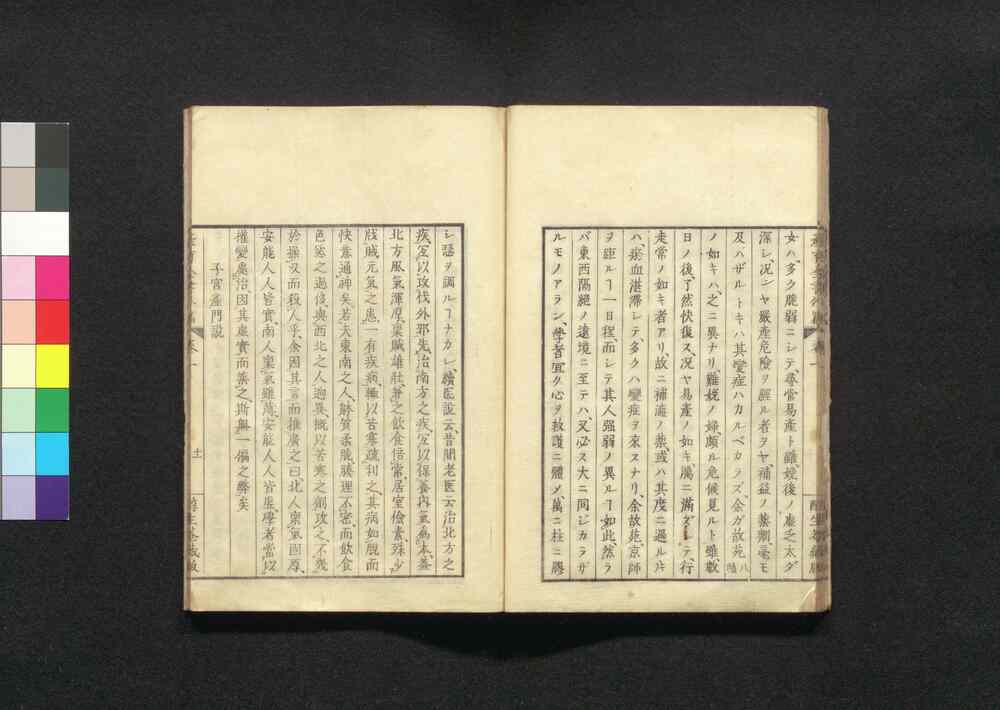 女ハ、多ク脆弱ニシテ、尋常易産ト雖娩後ノ虚乏太ダ
深シ、况ンヤ嚴産危險ヲ經ル者ヲヤ、補益ノ藥劑、毫モ
及ハザルトキハ其變症ハカルベカラズ、余ガ故苑
ノ如キハ、之ニ異ナリ、難娩ノ婦、頗ル危候見ルト雖、數
日ノ後、了然快復ス、况ヤ易産ノ如キ
走常ノ如キ者アリ、故ニ補澁ノ藥、或ハ其度ニ過ル片
ハ、瘀血湛滯シテ、多クハ變症ヲ來スナリ、余故苑、京師
ヲ距ルヿ一日程、而シテ其人强弱ノ異ルヿ如此、然ラ
バ東西隔絶ノ遠境ニ至テハ、又必ス大ニ同ジカラザ
ルモノアラン、學者宜ク心ヲ救護ニ體メ、萬ニ柱ニ膠
シ瑟ヲ調ルヿナカレ、續医説云、昔聞老医云、治北方之
疾、宜以攻伐外邪先、治南方之疾、宜以保養内氣為本、蓋
北方風氣渾厚、稟賦雄壯、兼之飲食倍常、居室儉素、殊少
戕賊元氣之患、一有疾病、輒以苦寒疏利之、其病如脱、而
快意通神矣、若夫東南之人、體質柔脆、腠理不密、而飲食
色慾之過侈、與西北之人迥異、概以苦寒之劑攻之、不幾
於操刃而殺人乎、余因其言而推廣之曰、北人稟氣固厚、
安能人人皆實、南人稟氣雖薄、安能人人皆虚、學者當以
權變處治、因其虚實而藥之、斯無一偏之弊矣
子宮産門説